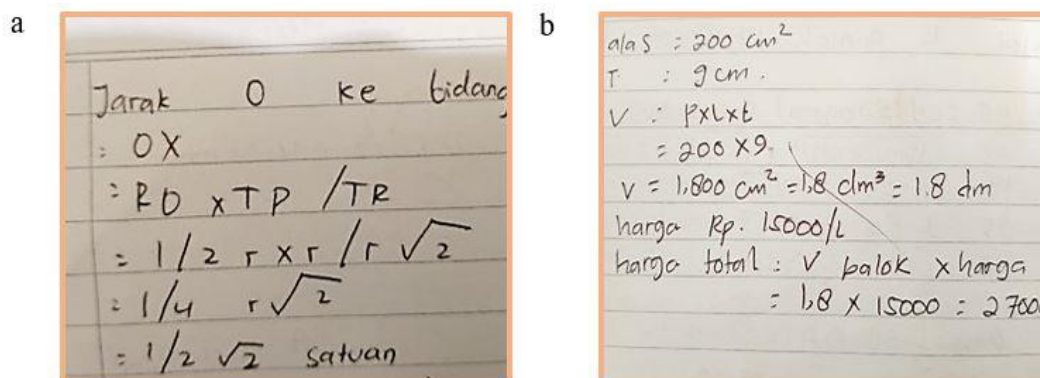 a
Jarak O ke bidang
= OX
= RO x TP / TR
= 1/2 r x r / r √2
= 1/4 r √2
= 1/2 √2 satuan
b
alas : 200 cm²
T : 9 cm.
V : PxLxt
= 200 x 9.
V = 1,800 cm² = 1,8 dm³ = 1.8 dm
harga Rp. 15000/L
harga total : V balok x harga
= 1,8 x 15000 = 2700